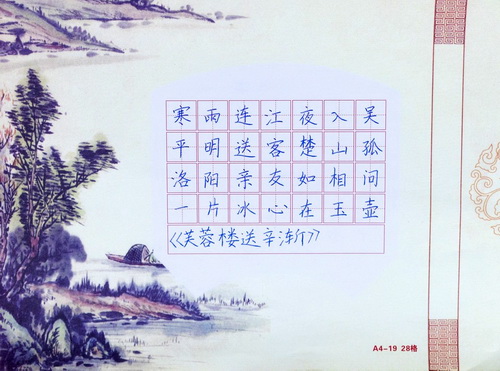 寒雨连江夜入吴
平明送客楚山孤
洛阳亲友如相问
一片冰心在玉壶
《芙蓉楼送辛渐》
A4-19 28格